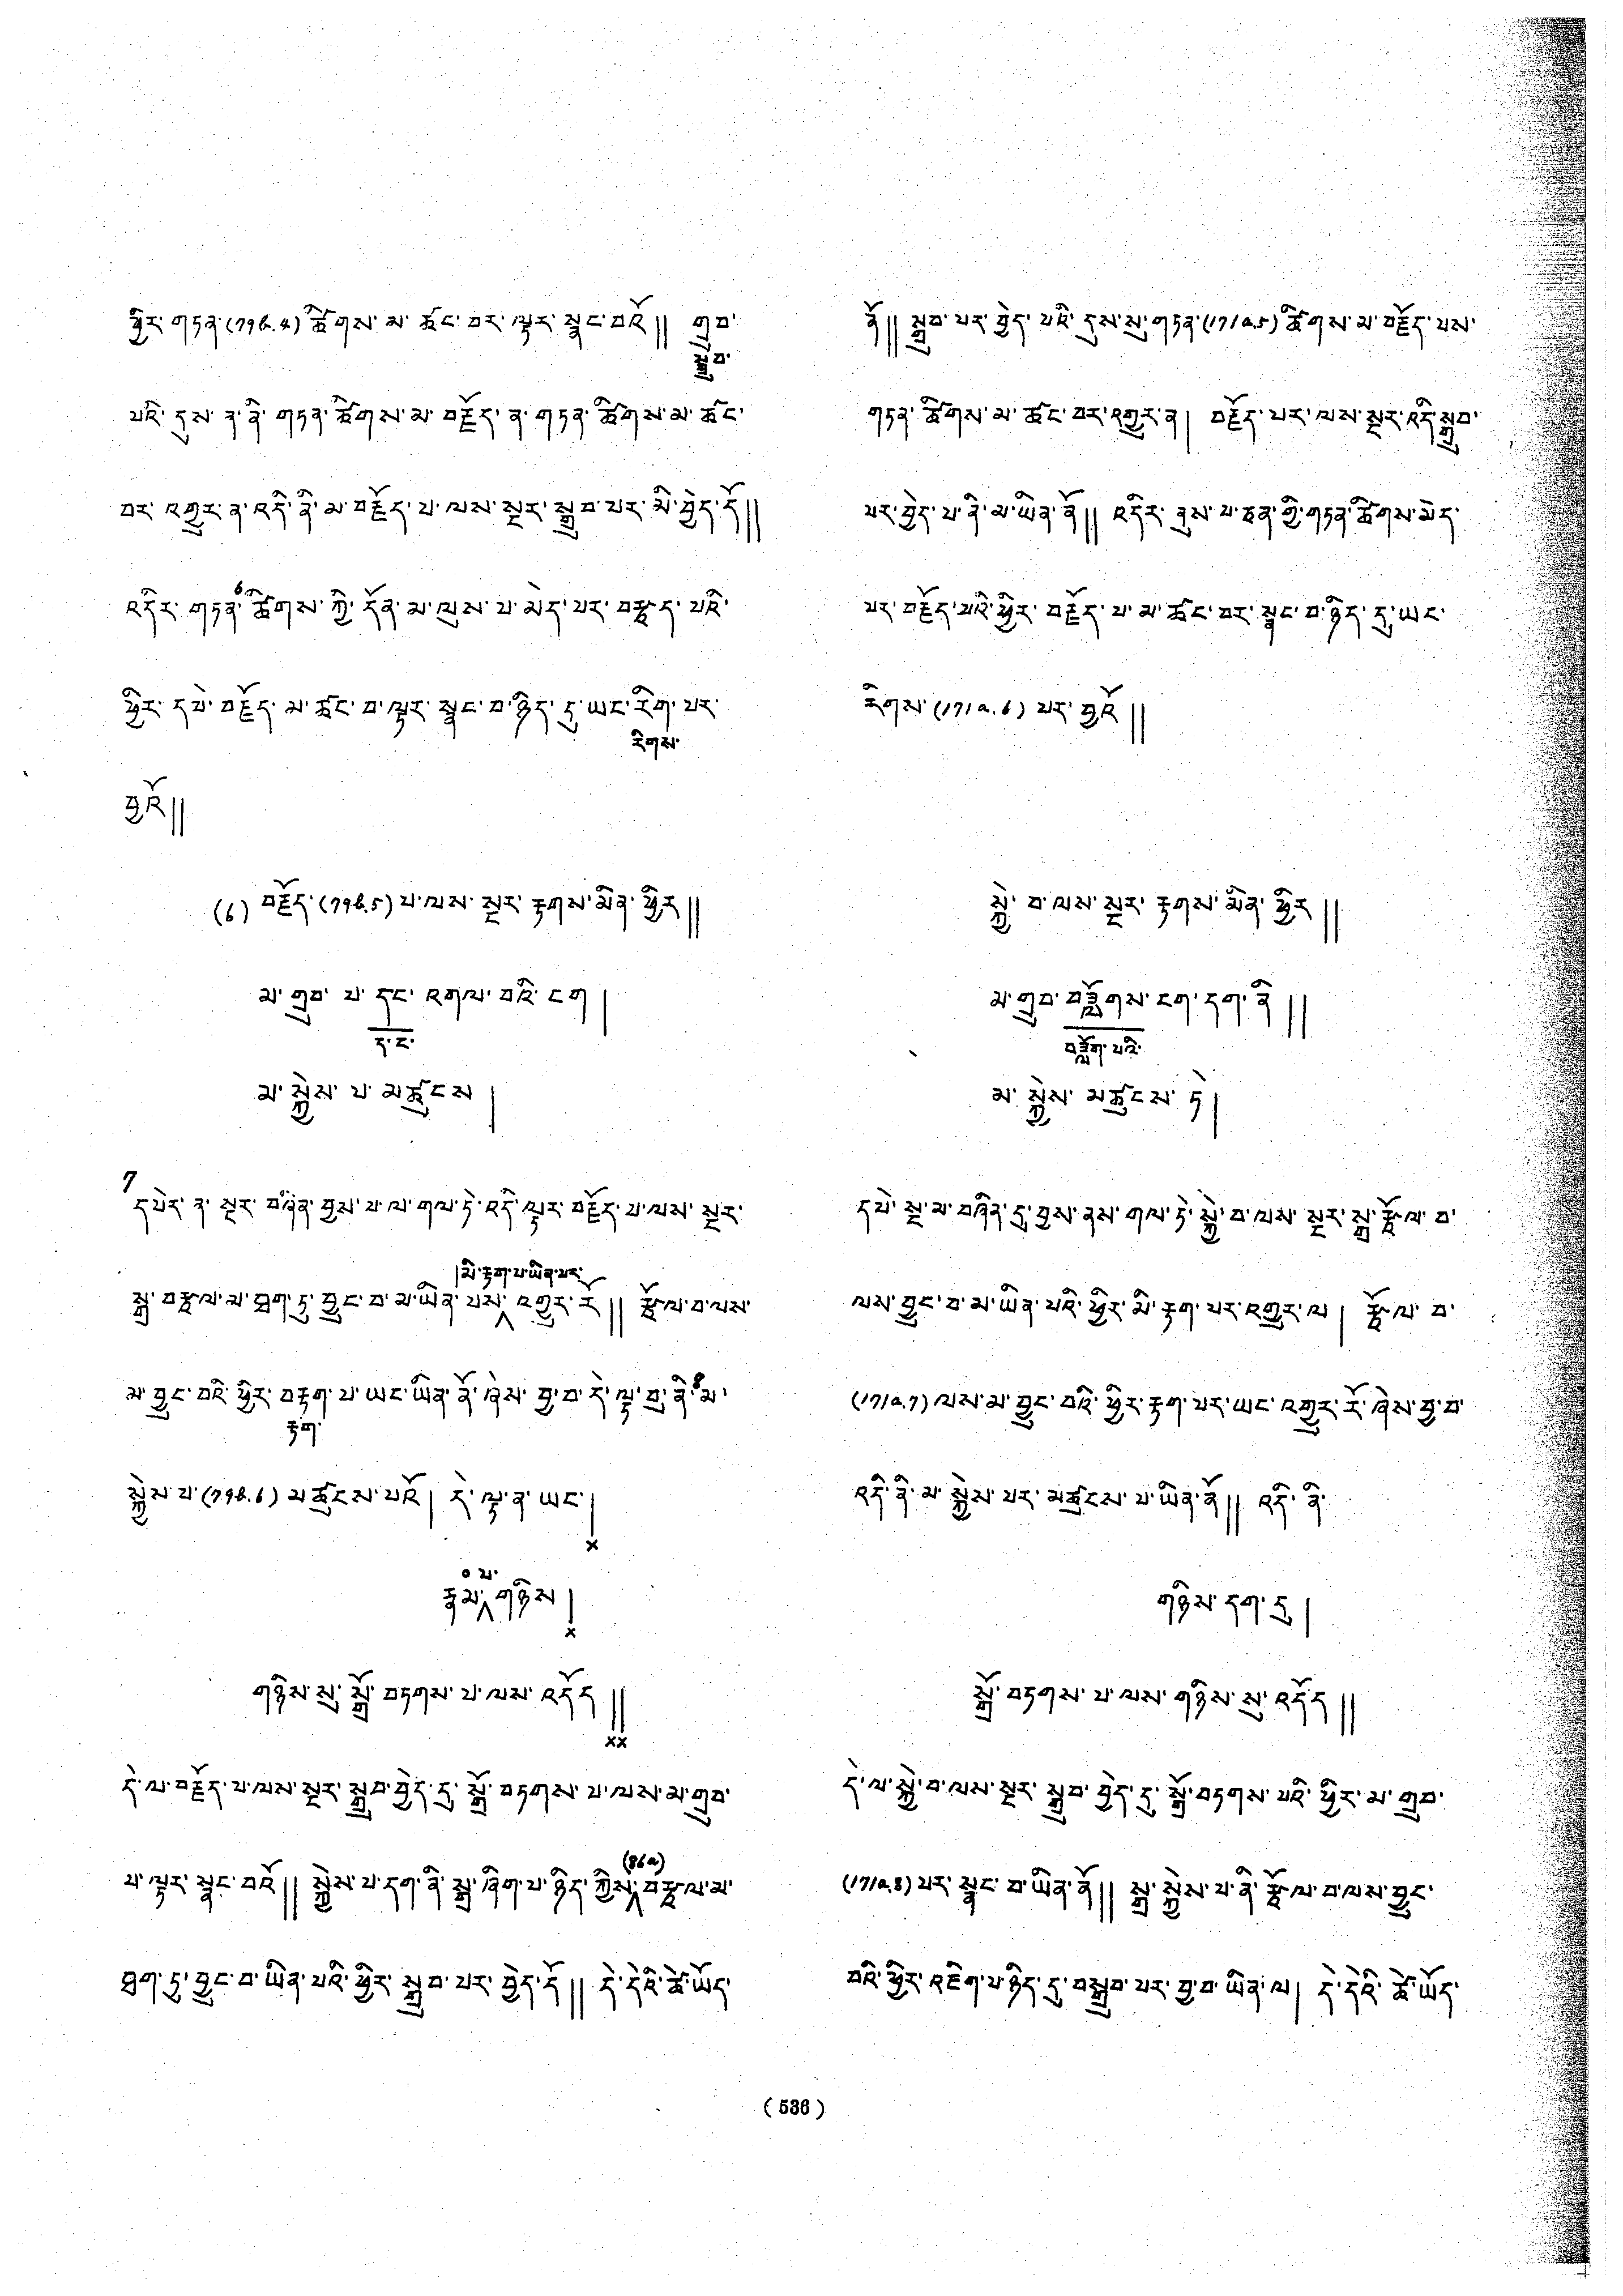 ཕྱིར་ གཏན་(79b.4) ཚིགས་ མ་ ཚང་ བར་ ལྟར་ སྣང་ བའོ༎ གྲུབ་
སྒྲུབ་
པའི་ དུས་ ན་ ནི་ གཏན་ ཚིགས་ མ་ བརྗོད་ ན་ གཏན་ ཚིགས་ མ་ ཚང་
བར་ འགྱུར་ ན་ འདི་ ནི་ མ་ བརྗོད་ པ་ ལས་ སྔར་ སྒྲུབ་ པར་ མི་ བྱེད་ དོ༎
འདིར་ གཏན་6 ཚིགས་ ཀྱི་ དོན་ མ་ ལུས་ པ་ མེད་ པར་ བརྩད་ པའི་
ཕྱིར་ དཔེ་ བརྗོད་ མ་ ཚང་ བ་ ལྟར་ སྣང་ བ་ ཉིད་ དུ་ ཡང་ རིག་ པར་
རིགས་
བྱའོ༎
(6) བརྗོད་(79b.5) པ་ ལས་ སྔར་ རྟགས་ མིན་ ཕྱིར༎
མ་ གྲུབ་ པ་ དང་ འགལ་ བའི་ ངག།
ད་ང་
མ་ སྐྱེས་ པ་ མཚུངས།
7 དཔེར་ ན་ སྔར་ བཞིན་ བྱས་ པ་ ལ་ གལ་ ཏེ་ འདི་ ལྟར་ བརྗོད་ པ་ ལས་ སྔར་
།མི་རྟག་པ་ཡིན་པར་
སྒྲ་ བརྩལ་ མ་ ཐག་ ཏུ་ བྱུང་ བ་ མ་ ཡིན་ པས་ འགྱུར་ རོ༎ རྩོལ་ བ་ ལས་
མ་ བྱུང་ བའི་ ཕྱིར་ བརྟག་ པ་ ཡང་ ཡིན་ ནོ་ ཞེས་ བྱ་ བ་ དེ་ ལྟ་ བུ་ ནི་8 མ་
རྟག་
སྐྱེས་ པ་(79b.6) མཚུངས་ པའོ། དེ་ ལྟ་ ན་ ཡང་།
×
༠ པ་
རྣམ་ གཉིས།
×
གཉིས་ སུ་ སྒྲོ་ བཏགས་ པ་ ལས་ འདོད༎
××
དེ་ ལ་ བརྗོད་ པ་ ལས་ སྔར་ སྒྲུབ་ བྱེད་ དུ་ སྒྲོ་ བཏགས་ པ་ ལས་ མ་ གྲུབ་
(86a)
པ་ ལྟར་ སྣང་ བའོ༎ སྐྱེས་ པ་ དག་ ནི་ སྒྲ་ ཞིག་ པ་ ཉིད་ ཀྱིས་ བརྩལ་ མ་
ཐག་ ཏུ་ བྱུང་ བ་ ཡིན་ པའི་ ཕྱིར་ སྒྲུབ་ པར་ བྱེད་ དོ༎ དེ་ དེའི་ ཚེ་ ཡོད་
ནོ༎ སྒྲུབ་ པར་ བྱེད་ པའི་ དུས་ སུ་ གཏན་(171a.5) ཚིགས་ མ་ བརྗོད་ པས་
གཏན་ ཚིགས་ མ་ ཚང་ བར་ འགྱུར་ ན། བརྗོད་ པར་ ལས་ སྔར་ འདི་ སྒྲུབ་
པར་ བྱེད་ པ་ ནི་ མ་ ཡིན་ ནོ༎ འདིར་ ནུས་ པ་ ཅན་ གྱི་ གཏན་ ཚིགས་ མེད་
པར་ བརྗོད་ པའི་ ཕྱིར་ བརྗོད་ པ་ མ་ ཚང་ བར་ སྣང་ བ་ ཉིད་ དུ་ ཡང་
རིགས་ (171a.6) པར་ བྱའོ༎
སྐྱེ་ བ་ ལས་ སྔར་ རྟགས་ མིན་ ཕྱིར༎
མ་ གྲུབ་ བཟློགས་ ངག་ དག་ ནི༎
བཟློག་པའི་
མ་ སྐྱེས་ མཚུངས་ ཏེ།
དཔེ་ སྔ་ མ་ བཞིན་ དུ་ བྱས་ ནས་ གལ་ ཏེ་ སྐྱེ་ བ་ ལས་ སྔར་ སྒྲ་ རྩོལ་ བ་
ལས་ བྱུང་ བ་ མ་ ཡིན་ པའི་ ཕྱིར་ མི་ རྟག་ པར་ འགྱུར་ ལ། རྩོལ་ བ་
(171a.7) ལས་ མ་ བྱུང་ བའི་ ཕྱིར་ རྟག་ པར་ ཡང་ འགྱུར་ རོ་ ཞེས་ བྱ་ བ་
འདི་ ནི་ མ་ སྐྱེས་ པར་ མཚུངས་ པ་ ཡིན་ ནོ༎ འདི་ ནི་
གཉིས་ དག་ ཏུ།
སྒྲོ་ བཏགས་ པ་ ལས་ གཉིས་ སུ་ འདོད༎
དེ་ ལ་ སྐྱེ་ བ་ ལས་ སྔར་ སྒྲུབ་ བྱེད་ དུ་ སྒྲོ་ བཏགས་ པའི་ ཕྱིར་ མ་ གྲུབ་
(171a.8) པར་ སྣང་ བ་ ཡིན་ ནོ༎ སྒྲ་ སྐྱེས་ པ་ ནི་ རྩོལ་ བ་ ལས་ བྱུང་
བའི་ ཕྱིར་ འཇིག་ པ་ ཉིད་ དུ་ བསྒྲུབ་ པར་ བྱ་ བ་ ཡིན་ ལ། དེ་ དེའི་ ཚེ་ ཡོད་
( 536 )